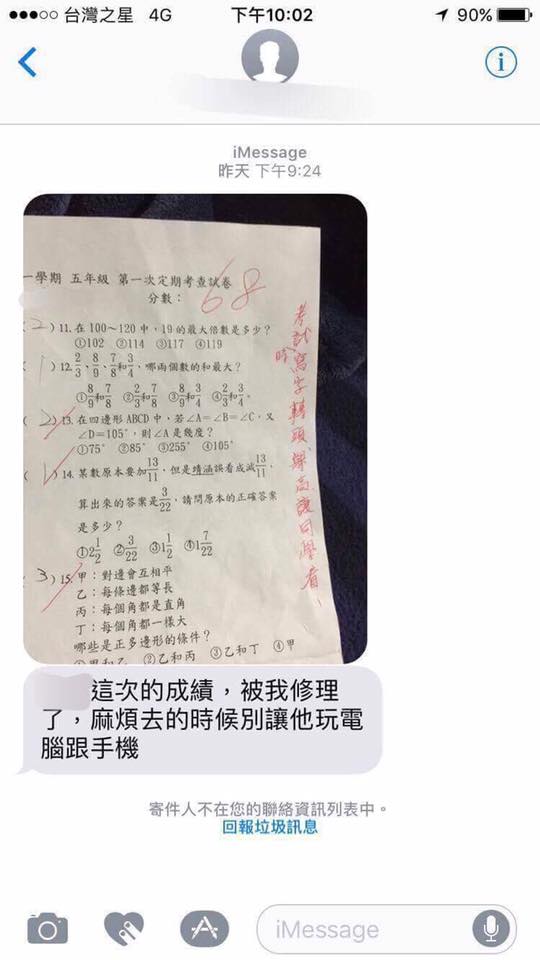 台灣之星 4G
下午10:02
90%
iMessage
昨天 下午9:24
一學期 五年級 第一次定期考查試卷
分數:
68
(2)11.在100~120中,19的最大倍數是多少?
①102 ②114 ③117 ④119
1)12. 2/3、8/9、7/8和3/4,哪兩個數的和最大?
①8/9和7/8 ②2/3和7/8 ③8/9和3/4 ④2/3和3/4。
(2)13.在四邊形ABCD中,若∠A=∠B=∠C,又
∠D=105°,則∠A是幾度?
①75° ②85° ③255° ④105°
(1)14.某數原本要加13/11,但是靖涵誤看成減13/11,
算出來的答案是3/22,請問原本的正確答案
是多少?
①2 1/2 ②3/22 ③1 1/2 ④1 7/22
3)15.甲:對邊會互相平
乙:每條邊都等長
丙:每個角都是直角
丁:每個角都一樣大
哪些是正多邊形的條件?
①甲和乙 ②乙和丙 ③乙和丁 ④甲
考試時寫字轉頭
讓同學看
這次的成績,被我修理
了,麻煩去的時候別讓他玩電
腦跟手機
寄件人不在您的聯絡資訊列表中。
回報垃圾訊息
iMessage